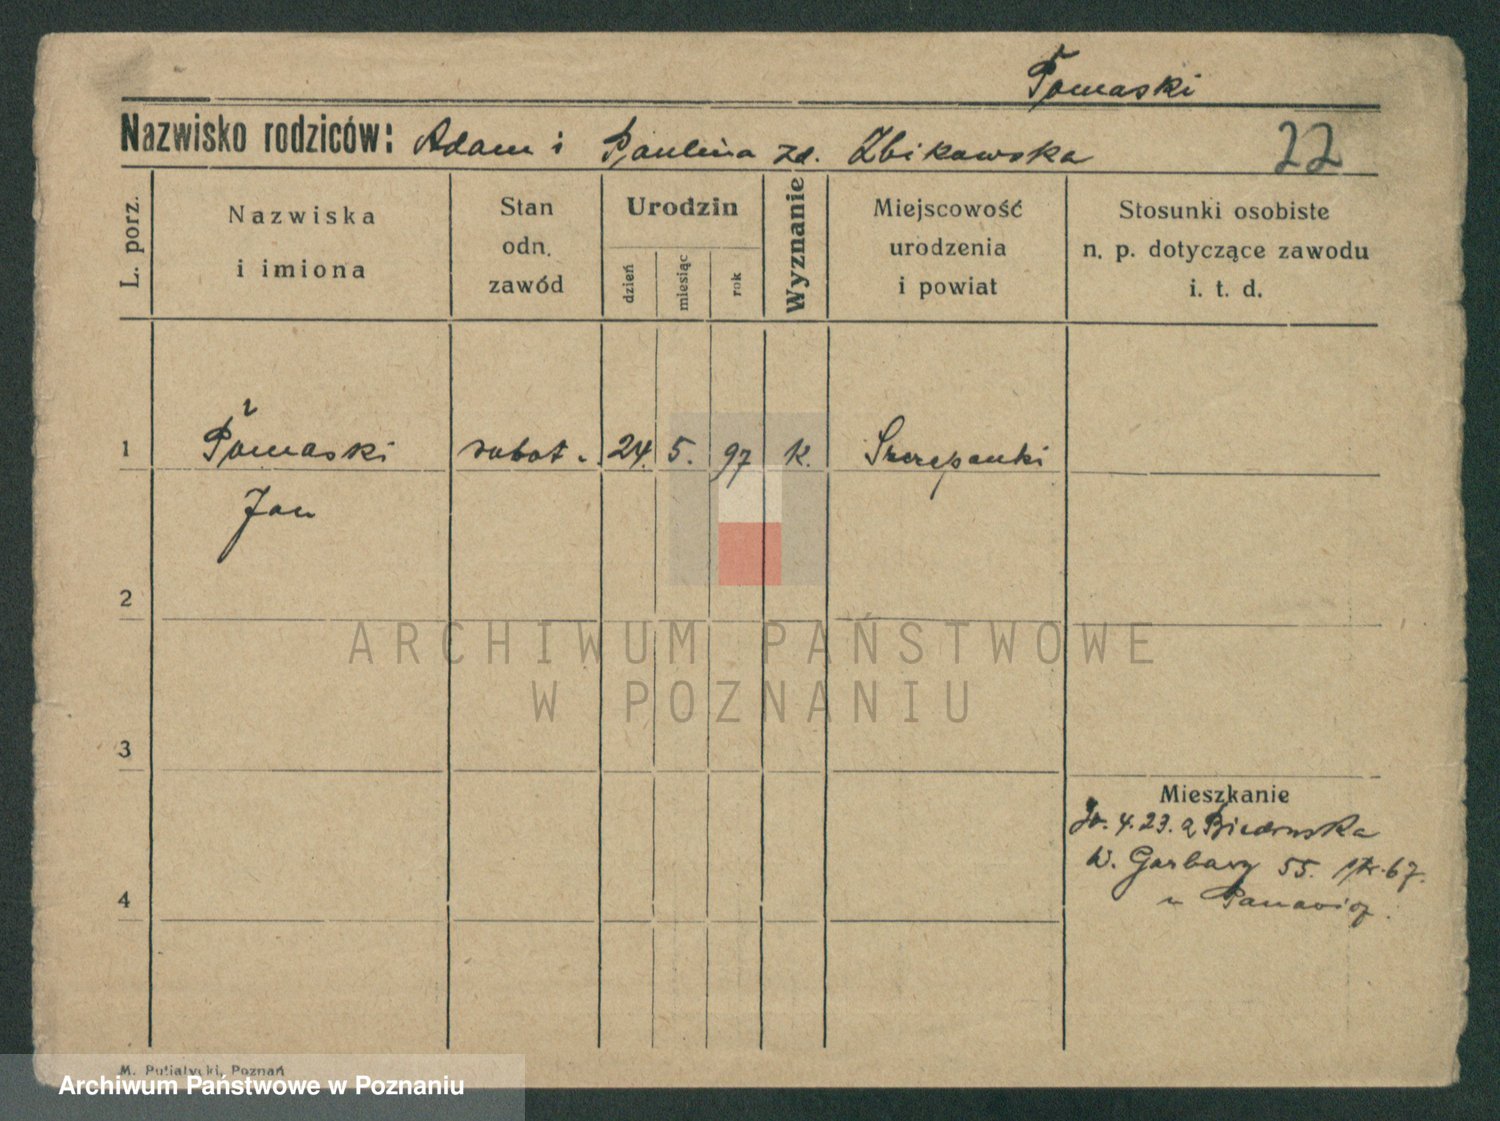 Tomaski
Nazwisko rodziców: Adam i Paulina zd. Zbikowska 22
L. porz.
Nazwiska
i imiona
Stan
odn.
zawód
Urodzin
dzień
miesiąc
rok
Wyznanie
Miejscowość
urodzenia
i powiat
Stosunki osobiste
n. p. dotyczące zawodu
i. t. d.
1 Tomaski robot. 24. 5. 97 k. Szczepanki
Jan
2
3
Mieszkanie
4. 23. z Biedruska
W. Garbary 55. 67.
4
M. Putiatycki, Poznań
ARCHIWUM PAŃSTWOWE
W POZNANIU
Archiwum Państwowe w Poznaniu